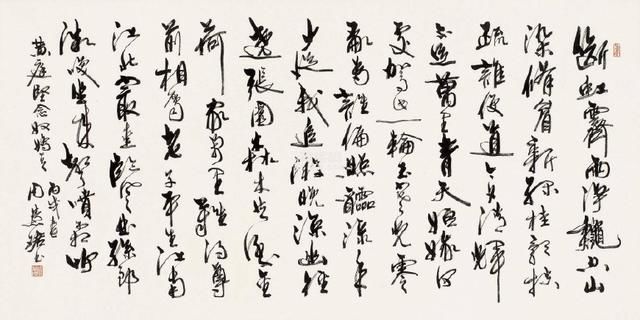 断虹霽雨净秋空山
染修眉新綠桂影扶
疏誰便道今夕清輝
不足萬里青天姮娥何
處駕此一輪玉寒光零
亂為誰偏照醽醁年
少從我追游晚涼幽徑
繞張園森木共倒金
荷家萬里難得尊
前相屬老子平生江南
江北最愛臨風曲孫郎
微笑坐來聲噴霜竹
黄庭堅念奴嬌
丙戌
周慧珺书